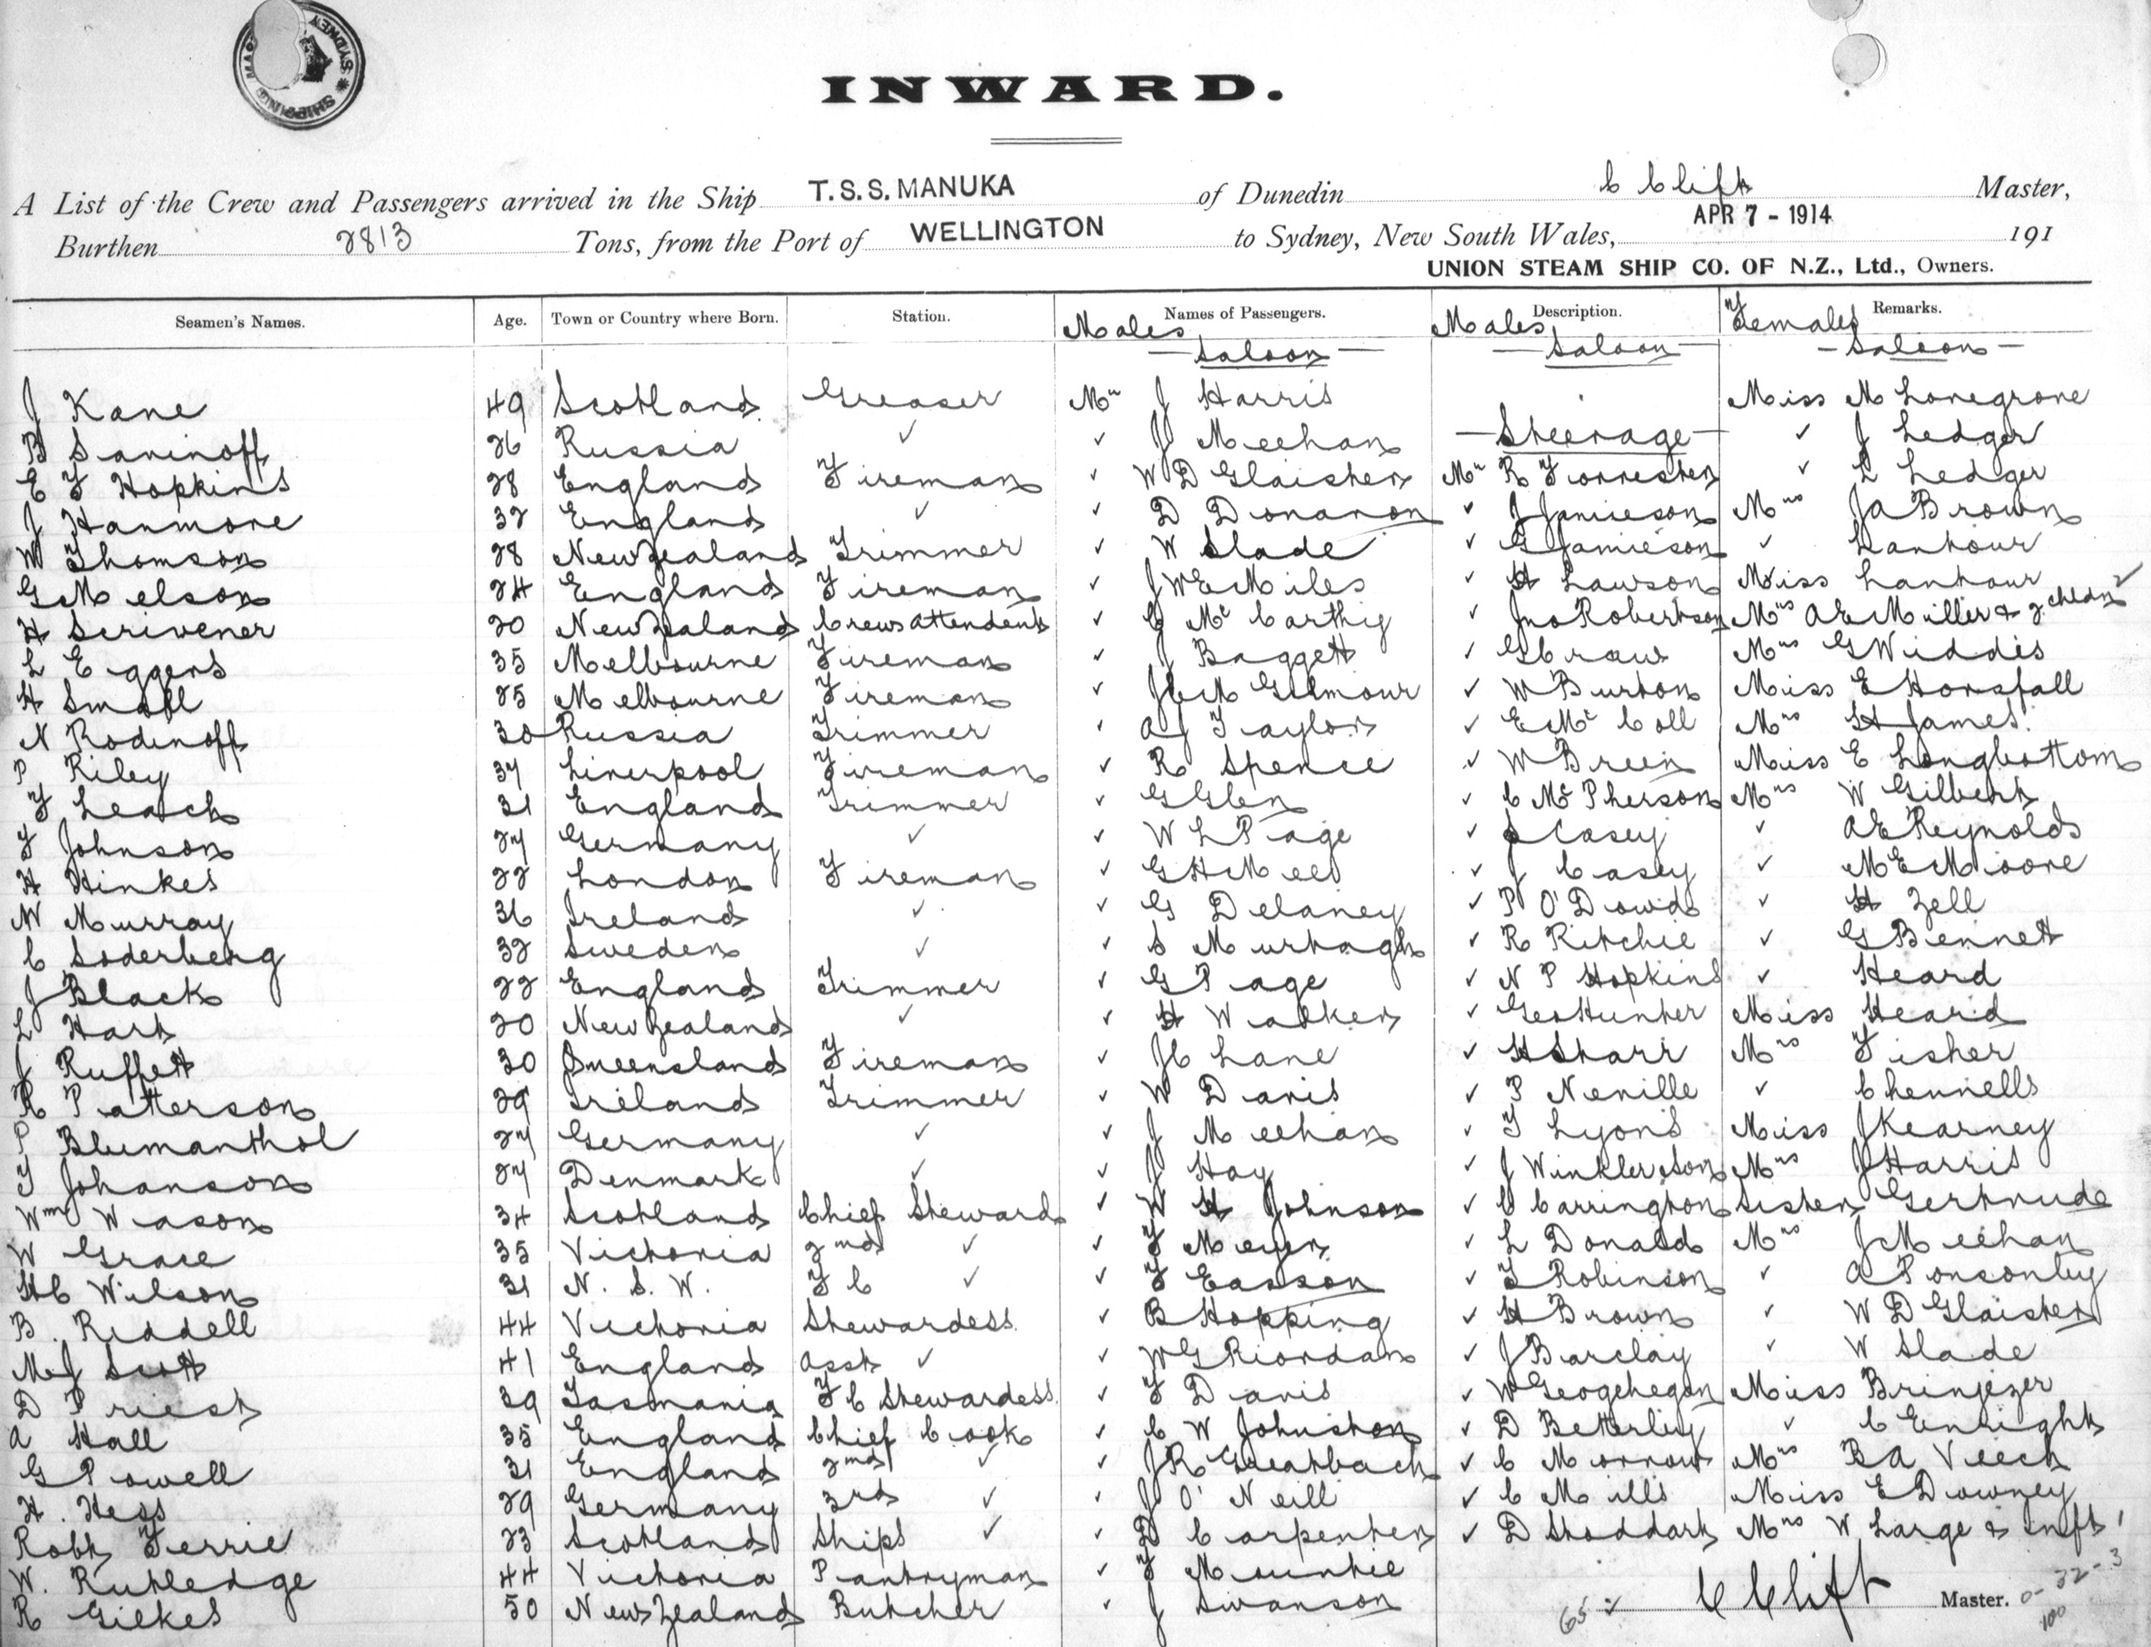 SHIPPING SYDNEY
INWARD.
A List of the Crew and Passengers arrived in the Ship T.S.S. MANUKA of Dunedin C Clift Master,
Burthen 2813 Tons, from the Port of WELLINGTON to Sydney, New South Wales, APR 7 - 1914 191
UNION STEAM SHIP CO. OF N.Z., Ltd., Owners.
Seamen's Names. Age. Town or Country where Born. Station. Names of Passengers. Description. Remarks.
Males Males Females
Saloon Saloon Saloon
J Kane 49 Scotland Greaser Mr J Harris Miss M Lovegrove
B Savinoff 26 Russia ✓ ✓ J Meehan Steerage ✓ J Ledger
E F Hopkins 28 England Fireman ✓ W D Glaister Mr R Forrester ✓ L Ledger
J Hanmore 32 England ✓ ✓ D Donavon ✓ J Jamieson Mrs J A Brown
W Thomson 28 New Zealand Trimmer ✓ W Slade ✓ G Jamieson ✓ Lankour
G Melson 24 England Fireman ✓ J W E Miles ✓ H Lawson Miss Lankour
H Scrivener 20 New Zealand Crews Attendent ✓ C McCarthy ✓ Jno Robertson Mrs A E Miller & 2 chldn 2
L Eggers 35 Melbourne Fireman ✓ J Baggett ✓ G Craw Mrs G Widdis
H Small 25 Melbourne Fireman ✓ J C M Gilmour ✓ W Burton Miss E Horsfall
N Rodinoff 30 Russia Trimmer ✓ A J Taylor ✓ E McColl Mrs H James
P Riley 37 Liverpool Fireman ✓ R Spence ✓ W Breen Miss E Longbottom
F Leach 31 England Trimmer ✓ G Glen ✓ C McPherson Mrs W Gilbert
F Johnson 27 Germany ✓ ✓ W L Page ✓ J Casey ✓ A E Reynolds
H Hinkes 22 London Fireman ✓ G H Meed ✓ J Casey ✓ M E Moore
W Murray 36 Ireland ✓ ✓ G Delaney ✓ P O'Dowd ✓ H Zell
C Soderberg 32 Sweden ✓ ✓ S Murtagh ✓ R Ritchie ✓ G Bennett
J Black 22 England Trimmer ✓ G Page ✓ N P Hopkins ✓ Heard
L Hart 20 New Zealand ✓ ✓ H Walker ✓ Geo Hunter Miss Heard
J Ruffett 30 Queensland Fireman ✓ J C Lane ✓ H Starr Mrs Fisher
R Patterson 29 Ireland Trimmer ✓ W Davis ✓ P Neville ✓ Chennells
P Blumanthol 27 Germany ✓ ✓ J Meehan ✓ T Lyons Miss J Kearney
T Johanson 27 Denmark ✓ ✓ J Hay ✓ J Winkler & Son Mrs J Harris
Wm Wason 34 Scotland Chief Steward ✓ W H Johnson ✓ C Carrington Sister Gertrude
W Grace 35 Victoria 2nd ✓ ✓ F Meyer ✓ L Donald Mrs J Meehan
H C Wilson 31 N. S. W. F C ✓ ✓ F Easson ✓ T Robinson ✓ A Ponsonby
B. Riddell 44 Victoria Stewardess ✓ B Hopping ✓ H Brown ✓ W D Glaister
M J Scott 41 England Asst ✓ ✓ W G Riordan ✓ J Barclay ✓ W Slade
D Priest 39 Tasmania F C Stewardess ✓ F Davis ✓ W Geogehegan Miss Brinjezer
A Hall 35 England Chief Cook ✓ C W Johnston ✓ D Betterley ✓ C Enright
G Powell 31 England 2nd ✓ ✓ J R Greatbach ✓ C Morrow Mrs B A Veech
H. Hess 29 Germany 3rd ✓ ✓ J O'Neill ✓ C Mills Miss E Downey
Robt Ferrie 23 Scotland Ships ✓ ✓ D Carpenter ✓ D Stoddart Mrs W Large & inft 1
W. Rutledge 44 Victoria Pantryman ✓ F Mountie
R Gilkes 50 New Zealand Butcher ✓ J Swanson 65 ✓ C Clift Master. 0-32-3
100